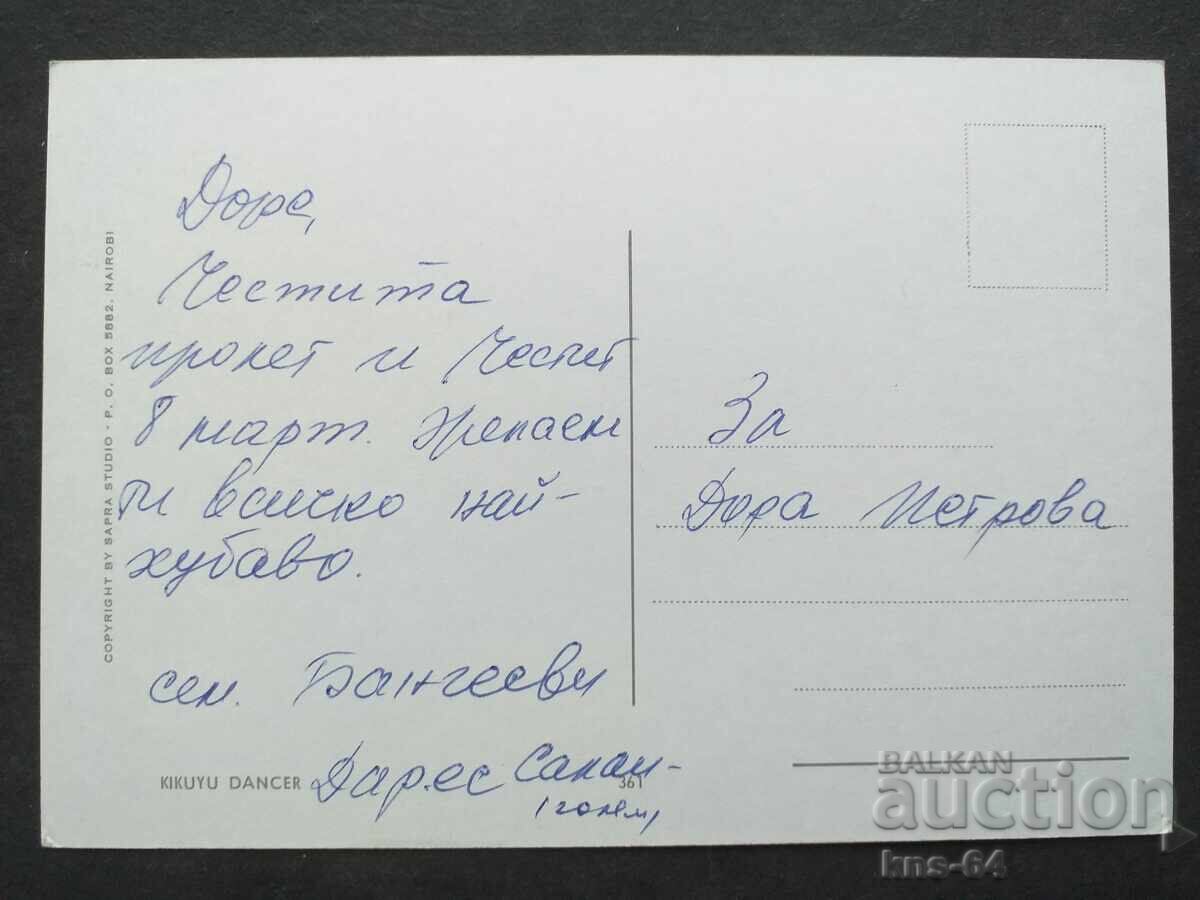 COPYRIGHT BY SAPRA STUDIO · P. O. BOX 5882, NAIROBI
Дора,
Честита
пролет и Честит
8 март. Желаем
ти всичко най-
хубаво.
сем.
Дарес Салаам
KIKUYU DANCER
361
За
Дора Петрова
BALKAN
auction
kns-64